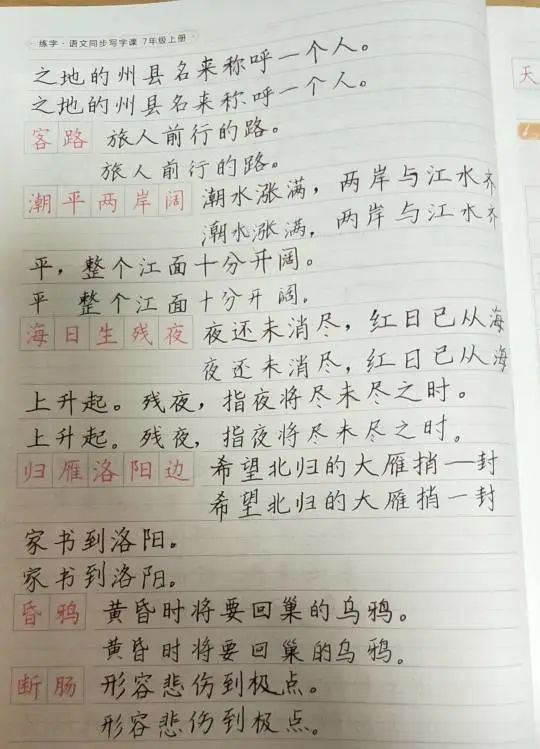 练字·语文同步写字课 7年级上册
之地的州县名来称呼一个人。
之地的州县名来称呼一个人。
客路 旅人前行的路。
旅人前行的路。
潮平两岸阔 潮水涨满，两岸与江水齐
潮水涨满，两岸与江水齐
平，整个江面十分开阔。
平 整个江面十分开阔。
海日生残夜 夜还未消尽，红日已从海
夜还未消尽，红日已从海
上升起。残夜，指夜将尽未尽之时。
上升起。残夜，指夜将尽未尽之时。
归雁洛阳边 希望北归的大雁捎一封
希望北归的大雁捎一封
家书到洛阳。
家书到洛阳。
昏鸦 黄昏时将要回巢的乌鸦。
黄昏时将要回巢的乌鸦。
断肠 形容悲伤到极点。
形容悲伤到极点。
天